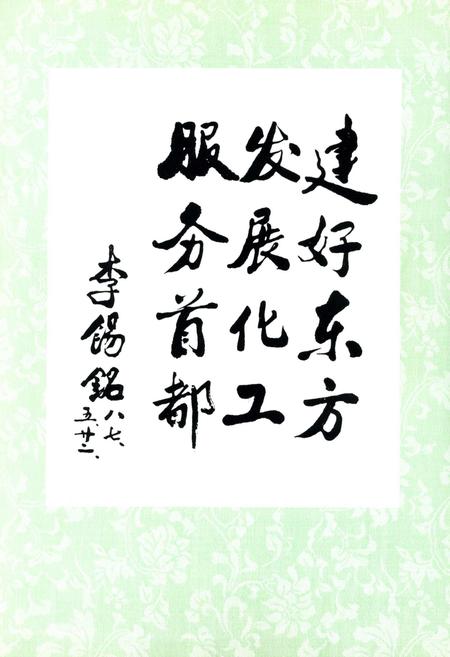 建好东方
发展化工
服务首都
李锡铭
八七、
五、廿二、